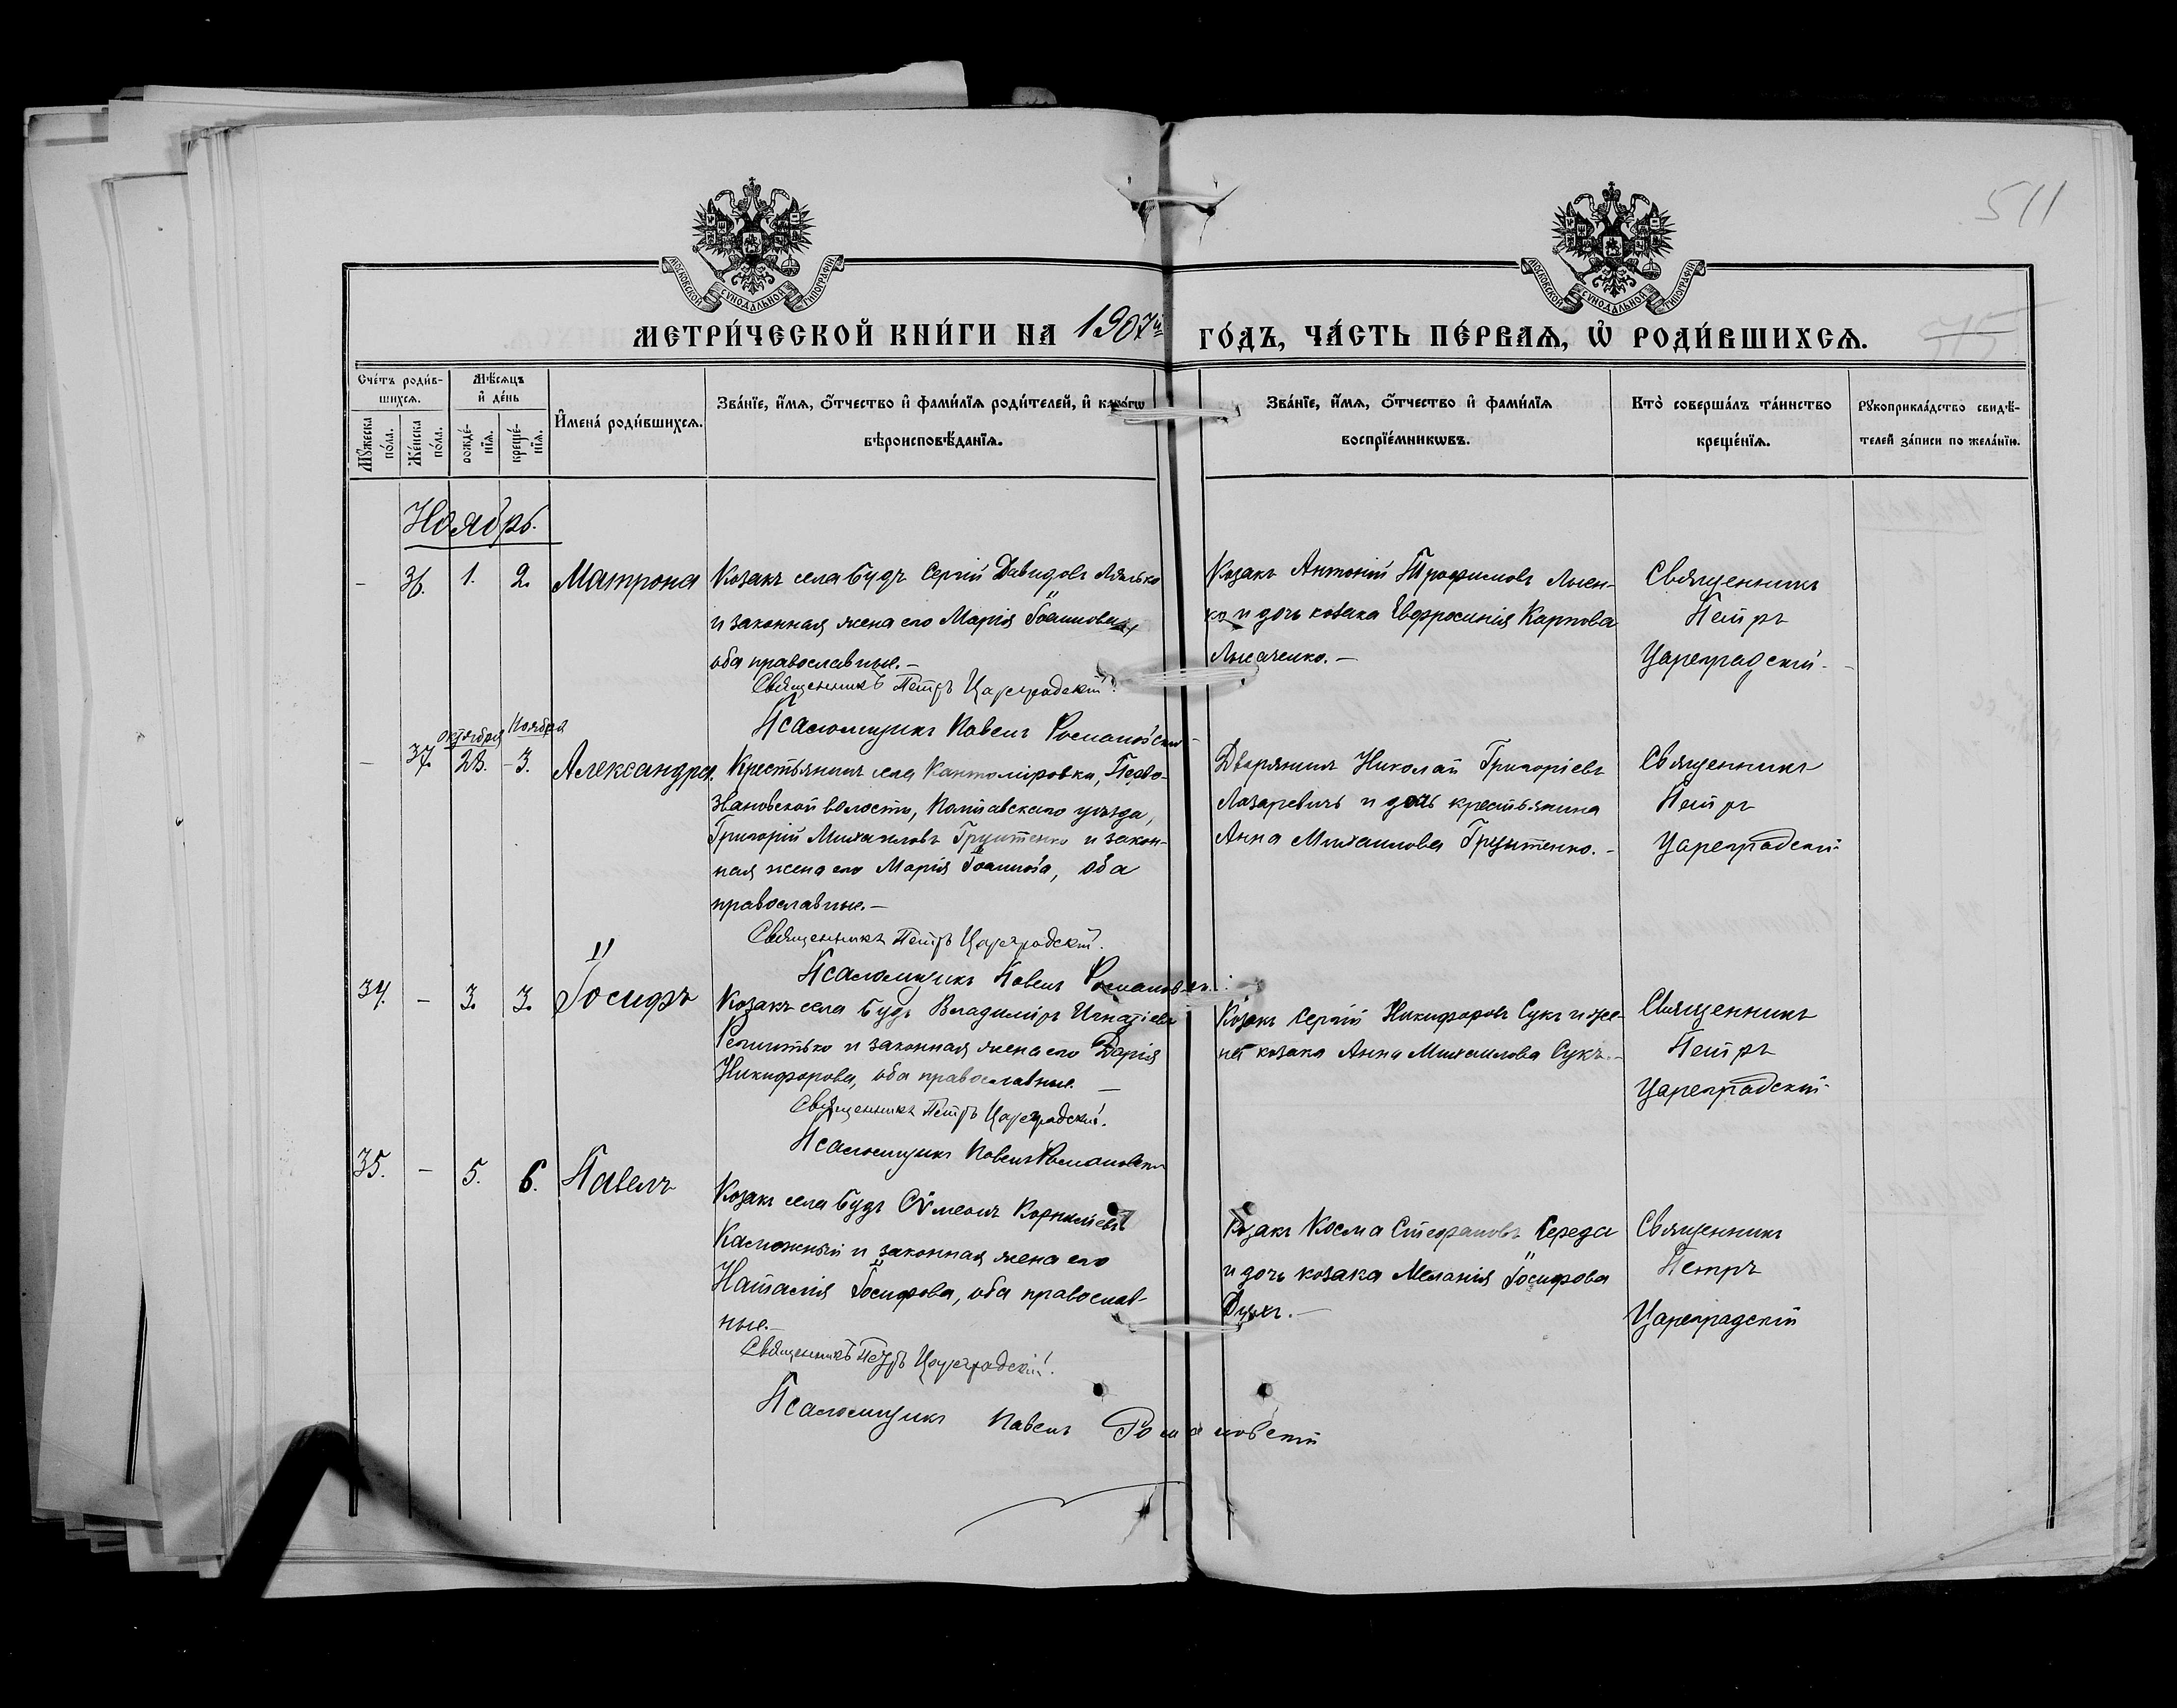 511
МОСКОВСКОЙ СѴНОДАЛЬНОЙ ТИПОГРАФІИ
МОСКОВСКОЙ СѴНОДАЛЬНОЙ ТИПОГРАФІИ
МЕТРИ́ЧЕСКОЙ КНИ́ГИ НА 1907й ГО́ДЪ, ЧА́СТЬ ПЕ́РВАѦ, Ѡ҆ РОДИ́ВШИХСѦ.
515
Сче́тъ роди́в-
шихсѧ.
Мѣ́сѧцъ
и҆ де́нь
Мꙋ́жеска
по́ла.
Же́нска
по́ла.
рожде́-
нїѧ.
креще́-
нїѧ.
И҆мена̀ роди́вшихсѧ.
Зва́нїе, и҆́мѧ, ѻ҆́тчество и҆ фами́лїѧ роди́телей, и҆ како́гѡ
вѣроисповѣ́данїѧ.
Зва́нїе, и҆́мѧ, ѻ҆́тчество и҆ фами́лїѧ
воспрїе́мникѡвъ.
Кто̀ соверша́лъ та́инство
креще́нїѧ.
Рꙋкоприкла́дство свидѣ́-
телей за́писи по жела́нїю.
Ноябрь.
– 36. 1. 2. Матрона
Козакъ села Будъ Сергій Давидовъ Лялько
и законная жена его Марія Іоаннова,
оба православные. –
Священникъ Петръ Цареградскій.
Псаломщикъ Павелъ Романовскій
Козакъ Антоній Трофимовъ Лысен-
ко и дочь козака Евфросинія Карпова
Лысаченко. –
Священникъ
Петръ
Цареградскій. –
октября Ноября
– 37. 28. – 3. Александра.
Крестьянинъ села Кантоміровки, Перво-
звановской волости, Полтавскаго уѣзда,
Григорій Михаиловъ Грунтенко и закон-
ная жена его Марія Іоаннова, оба
православные. –
Священникъ Петръ Цареградскій.
Псаломщикъ Павелъ
Дворянинъ Николай Григоріевъ
Лазаревичъ и дочь крестьянина
Анна Михаилова Грунтенко. –
Священникъ
Петръ
Цареградскій
34. – 3. 3. Іосифъ
Козакъ села Будъ Владиміръ Игнатіевъ
и законная жена его Дарія
Никифорова, оба православные. –
Священникъ Петръ Цареградскій.
Псаломщикъ Павелъ Романовскій
Козакъ Сергій Никифоровъ Сукъ и же-
на козака Анна Михаилова Сукъ. –
Священникъ
Петръ
Цареградскій
35. – 5. 6. Павелъ
Козакъ села Будъ Сѵмеонъ Корниліевъ
Калюжный и законная жена его
Наталія Іосифова, оба православ-
ные. –
Священникъ Петръ Цареградскій.
Псаломщикъ Павелъ Романовскій
Козакъ Косма Стефановъ Середа
и дочь козака Меланія Іосифова
Священникъ
Петръ
Цареградскій